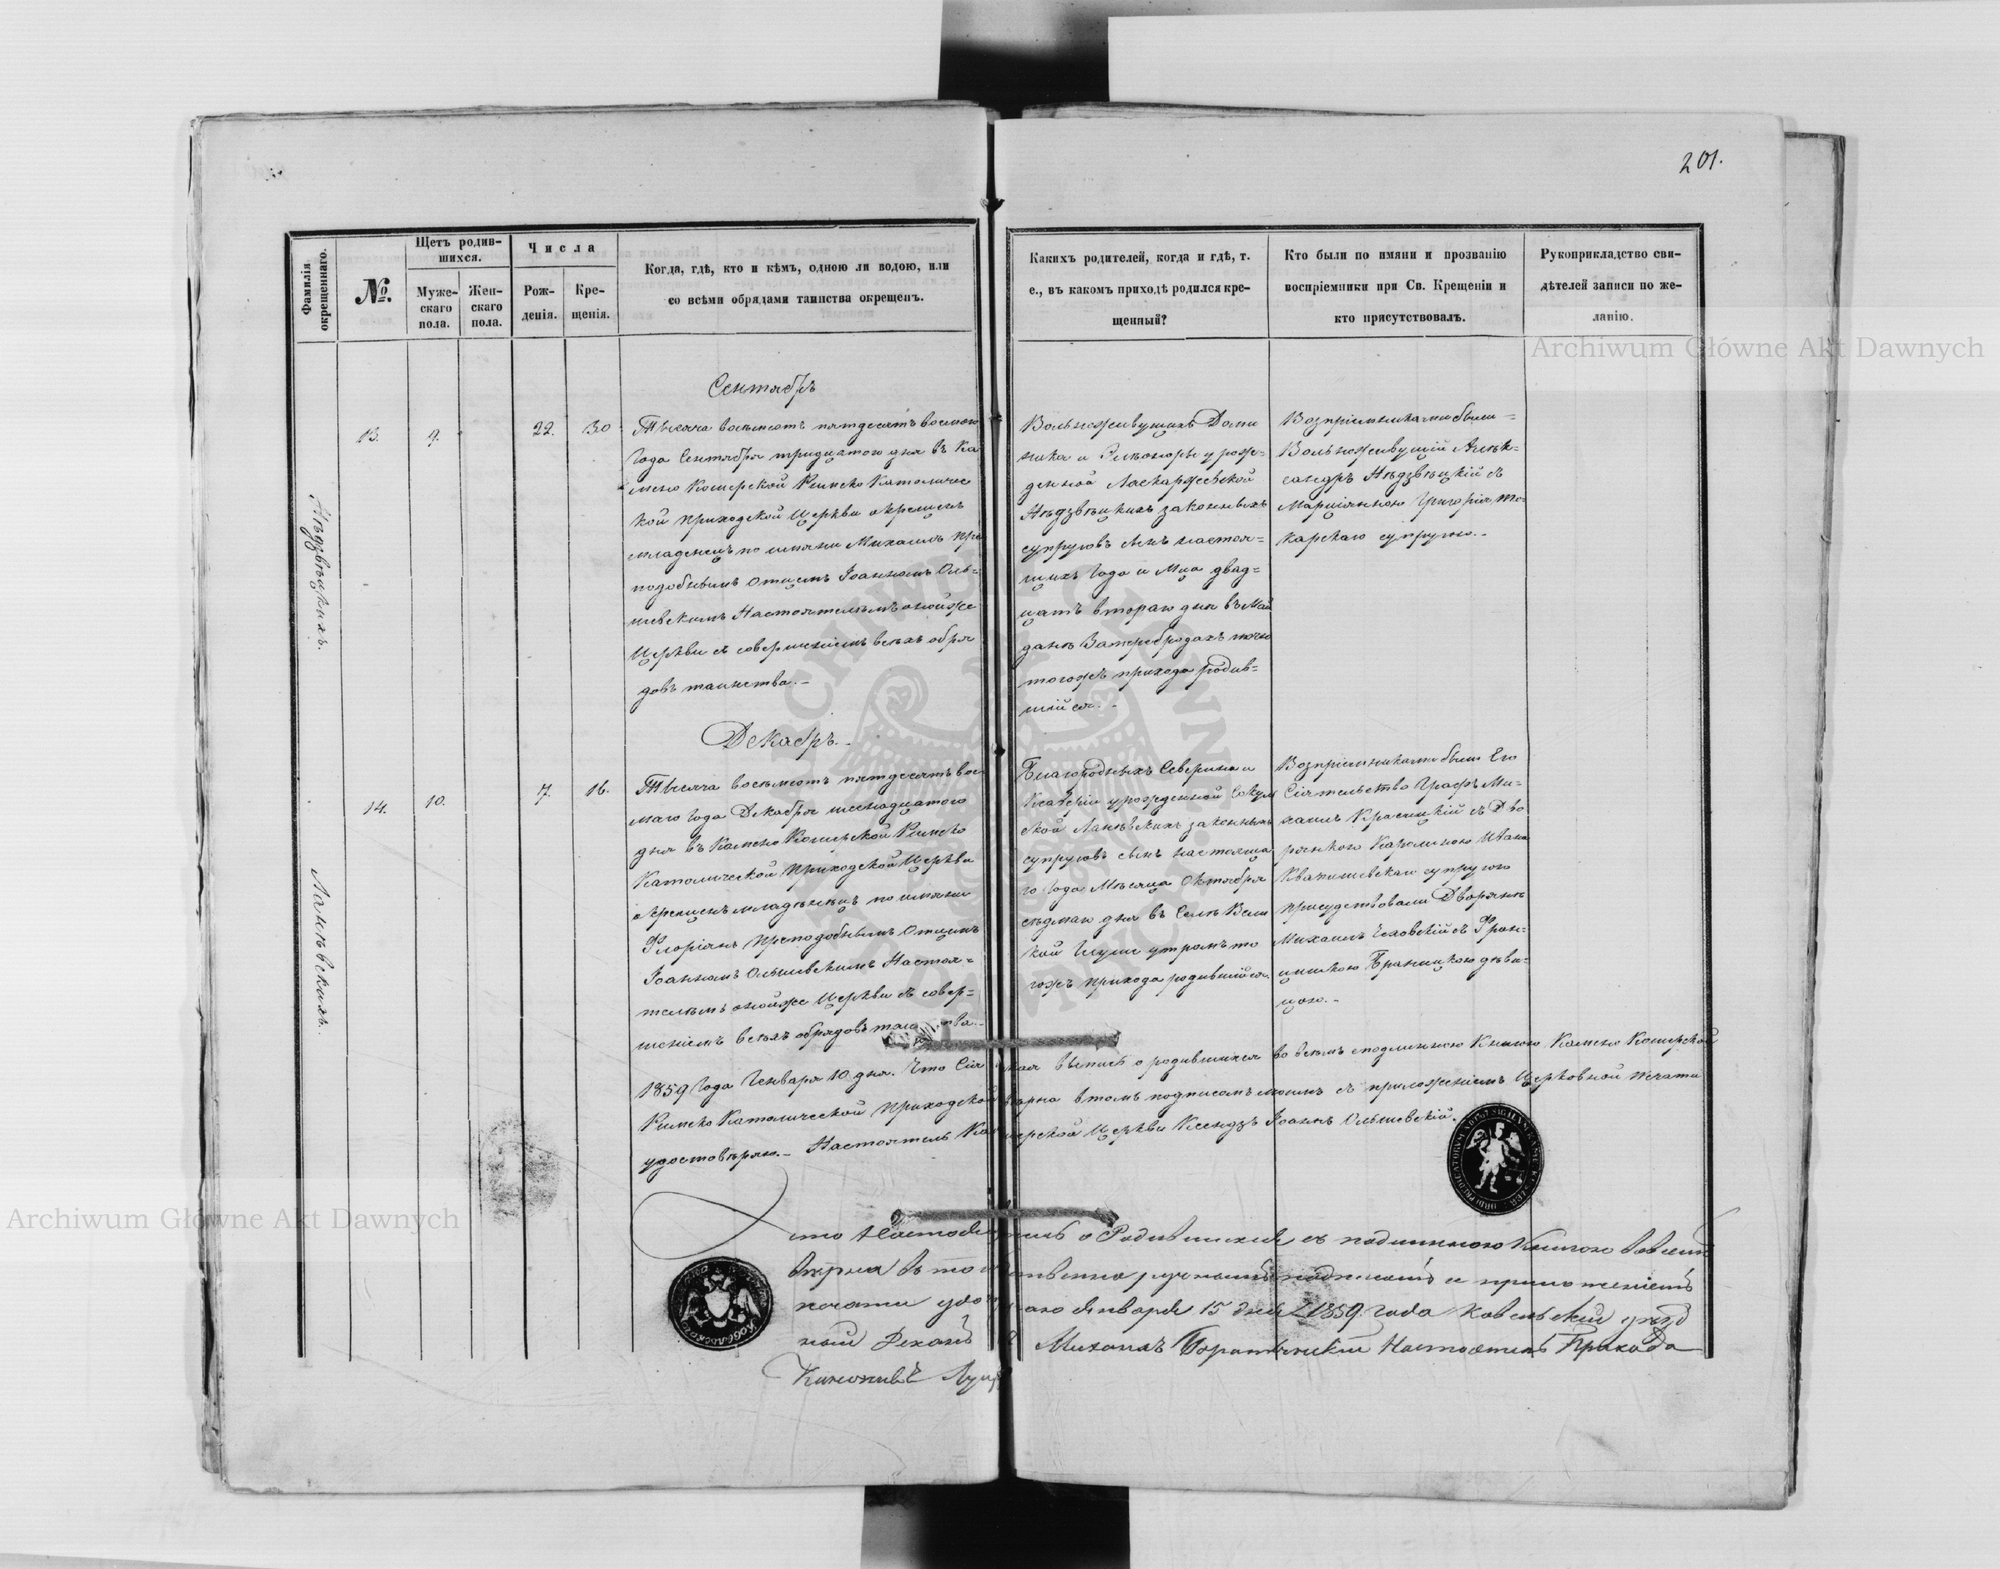 201.
Фамилія окрещеннаго.
№.
Щетъ родив-
шихся.
Муже-
скаго
пола.
Жен-
скаго
пола.
Числа
Рож-
денія.
Кре-
щенія.
Когда, гдѣ, кто и кѣмъ, одною ли водою, или
со всѣми обрядами таинства окрещенъ.
Какихъ родителей, когда и гдѣ, т.
е., въ какомъ приходѣ родился кре-
щенный?
Кто были по имяни и прозванію
воспріемники при Св. Крещеніи и
кто присутствовалъ.
Рукоприкладство сви-
дѣтелей записи по же-
ланію.
Archiwum Główne Akt Dawnych
Сентябрь
Нѣдзвѣцкихъ.
13.
9.
22.
30
Тысяча восемсотъ пятдесятъ восмаго
Года Сентября тридцатаго дня въ Ка
мено Коширской Римско Католичес
кой приходской Церкви окрещенъ
младенецъ по имяни Михаилъ Пре
подобнымъ Отцемъ Іоанномъ Оль=
шевскимъ Настоятелемъ онойже
Церкви съ совершеніемъ всѣхъ обря
довъ таинства.-
Вольноживущихъ Доми
ника и Элеоноры урож=
денной Ласкаржевской
Нѣдзвѣцкихъ законныхъ
супруговъ сынъ настоя=
щихъ Года и Мца двад=
цать втораго дня въ Май
данѣ
тогожъ прихода родив=
шійся.-
Воспріемниками были=
Вольноживущій Алек=
сандръ Нѣдзвѣцкій съ
Маріянною Григорія
супругою.-
Декабрь.-
Ланевскихъ.
14.
10.
7.
16.
Тысяча восемсотъ пятдесятъ вос
маго Года Декабря шеснадцатаго
дня въ Камено Коширской Римско
Католической Приходской Церкви
окрещенъ младенецъ по имяни
Флоріянъ Преподобнымъ Отцемъ
Іоанномъ Ольшевскимъ Настоя=
телемъ онойже Церкви съ совер=
шеніемъ всѣхъ обрядовъ
Благородныхъ Северина и
Ксаверіи урожденной
Ланевскихъ законныхъ
супруговъ сынъ настояща
го Года Мѣсяца Октября
седмаго дня въ Селѣ Вели
кой Глуши утромъ то
гожъ прихода родившійся.
Воспріемниками были Его
Сіятельство Графъ Ми=
хаилъ Красицкій съ Дво
рянкою Каролиною Ивана
супругою
присудствовали Дворяне
Михаилъ Чеховскій съ Фран=
цишкою Браницкою дѣви=
цою.-
1859 Года Генваря 10 дня. Что Сія выпись о родившихся во всемъ сподлинною Книгою Камено Коширской
Римско Католической Приходской вѣрна втомъ подписомъ моимъ съ приложеніемъ Церковной печати
удостовѣряю.- Настоятель Церкви Ксендзъ Іоаннъ Ольшевскій.
что о Родившихся съ подлинною Книгою вовсемъ
вѣрна въ томъ подписомъ и приложеніемъ
печати Января 15 дня 1859 Года Ковельский уезд
ный Деканъ Михаилъ Настоятель Прихода
Archiwum Główne Akt Dawnych